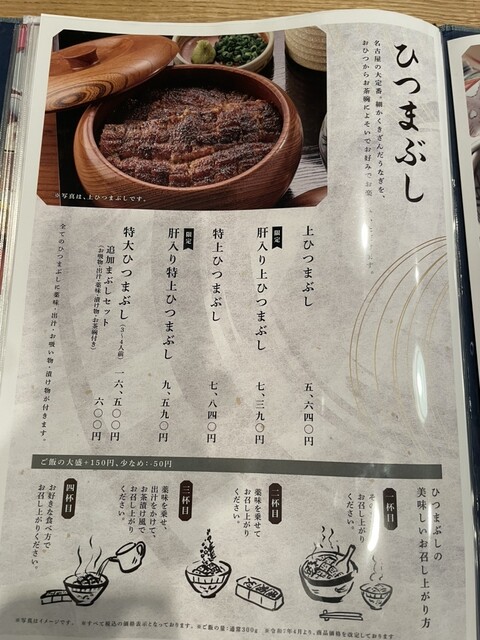 ひつまぶし
名古屋の大定番。細かくきざんだうなぎを、
おひつからお茶碗によそいでお好みでお楽
※写真は、上ひつまぶしです。
上ひつまぶし 五、六四〇円
限定
肝入り上ひつまぶし 七、三九〇円
特上ひつまぶし 七、八四〇円
限定
肝入り特上ひつまぶし 九、五九〇円
特大ひつまぶし(3〜4人前) 一六、五〇〇円
追加まぶしセット 六〇〇円
(お吸物・出汁・薬味・漬け物・お茶碗付き)
全てのひつまぶしに薬味・出汁・お吸い物・漬け物が付きます。
ご飯の大盛+150円、少なめ:-50円
ひつまぶしの
美味しいお召し上がり方
一杯目
お召し上がり
ください。
二杯目
薬味を乗せて
お召し上がり
ください。
三杯目
薬味を乗せ、
出汁をかけて、
お茶漬け風で
お召し上がり
ください。
四杯目
お好きな食べ方で
お召し上がりください。
※写真はイメージです。 ※すべて税込の価格表示となっております。※ご飯の量:通常300g ※令和7年4月より、商品価格を改定しております